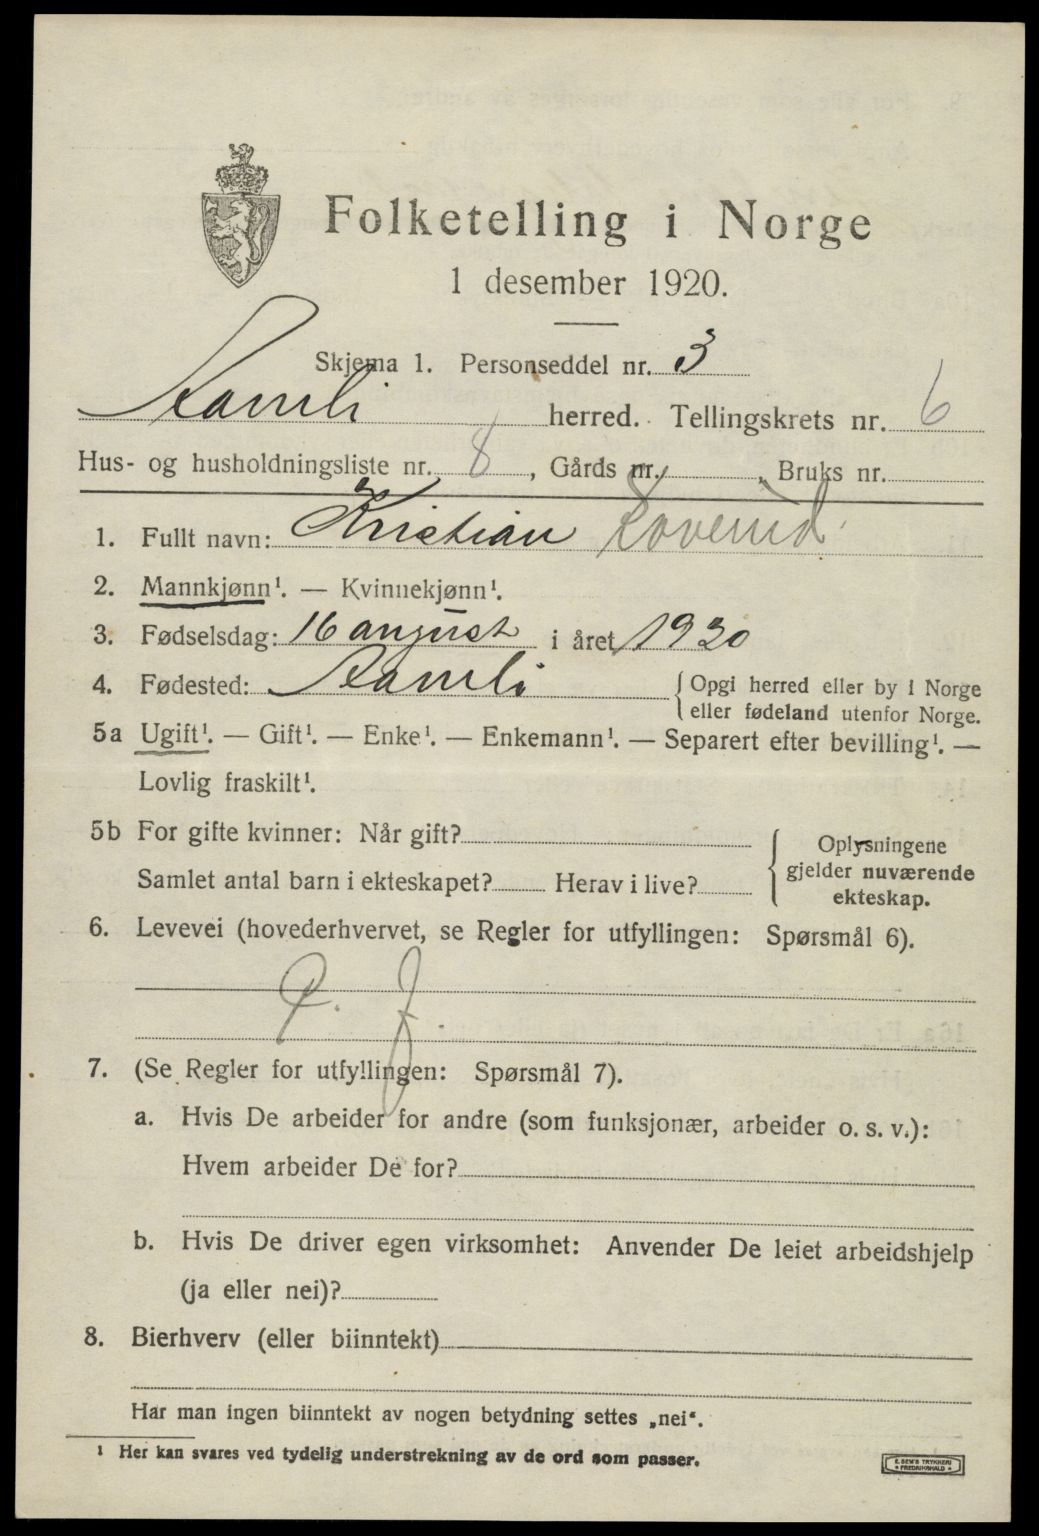 Folketelling i Norge
1 desember 1920.
Skjema 1. Personseddel nr. 3
herred. Tellingskrets nr. 6
Hus- og husholdningsliste nr. 8, Gårds nr. , Bruks nr.
1. Fullt navn: Kristian
2. Mannkjønn¹. — Kvinnekjønn¹.
3. Fødselsdag: 16 august i året 1920
4. Fødested: {Opgi herred eller by i Norge
eller fødeland utenfor Norge.
5a Ugift¹. — Gift¹. — Enke¹. — Enkemann¹. — Separert efter bevilling¹. —
Lovlig fraskilt¹.
5b For gifte kvinner: Når gift?
Samlet antal barn i ekteskapet? Herav i live?
Oplysningene
gjelder nuværende
ekteskap.
6. Levevei (hovederhvervet, se Regler for utfyllingen: Spørsmål 6).
7. (Se Regler for utfyllingen: Spørsmål 7).
a. Hvis De arbeider for andre (som funksjonær, arbeider o. s. v.):
Hvem arbeider De for?
b. Hvis De driver egen virksomhet: Anvender De leiet arbeidshjelp
(ja eller nei)?
8. Bierhverv (eller biinntekt)
Har man ingen biinntekt av nogen betydning settes „nei“.
¹ Her kan svares ved tydelig understrekning av de ord som passer.